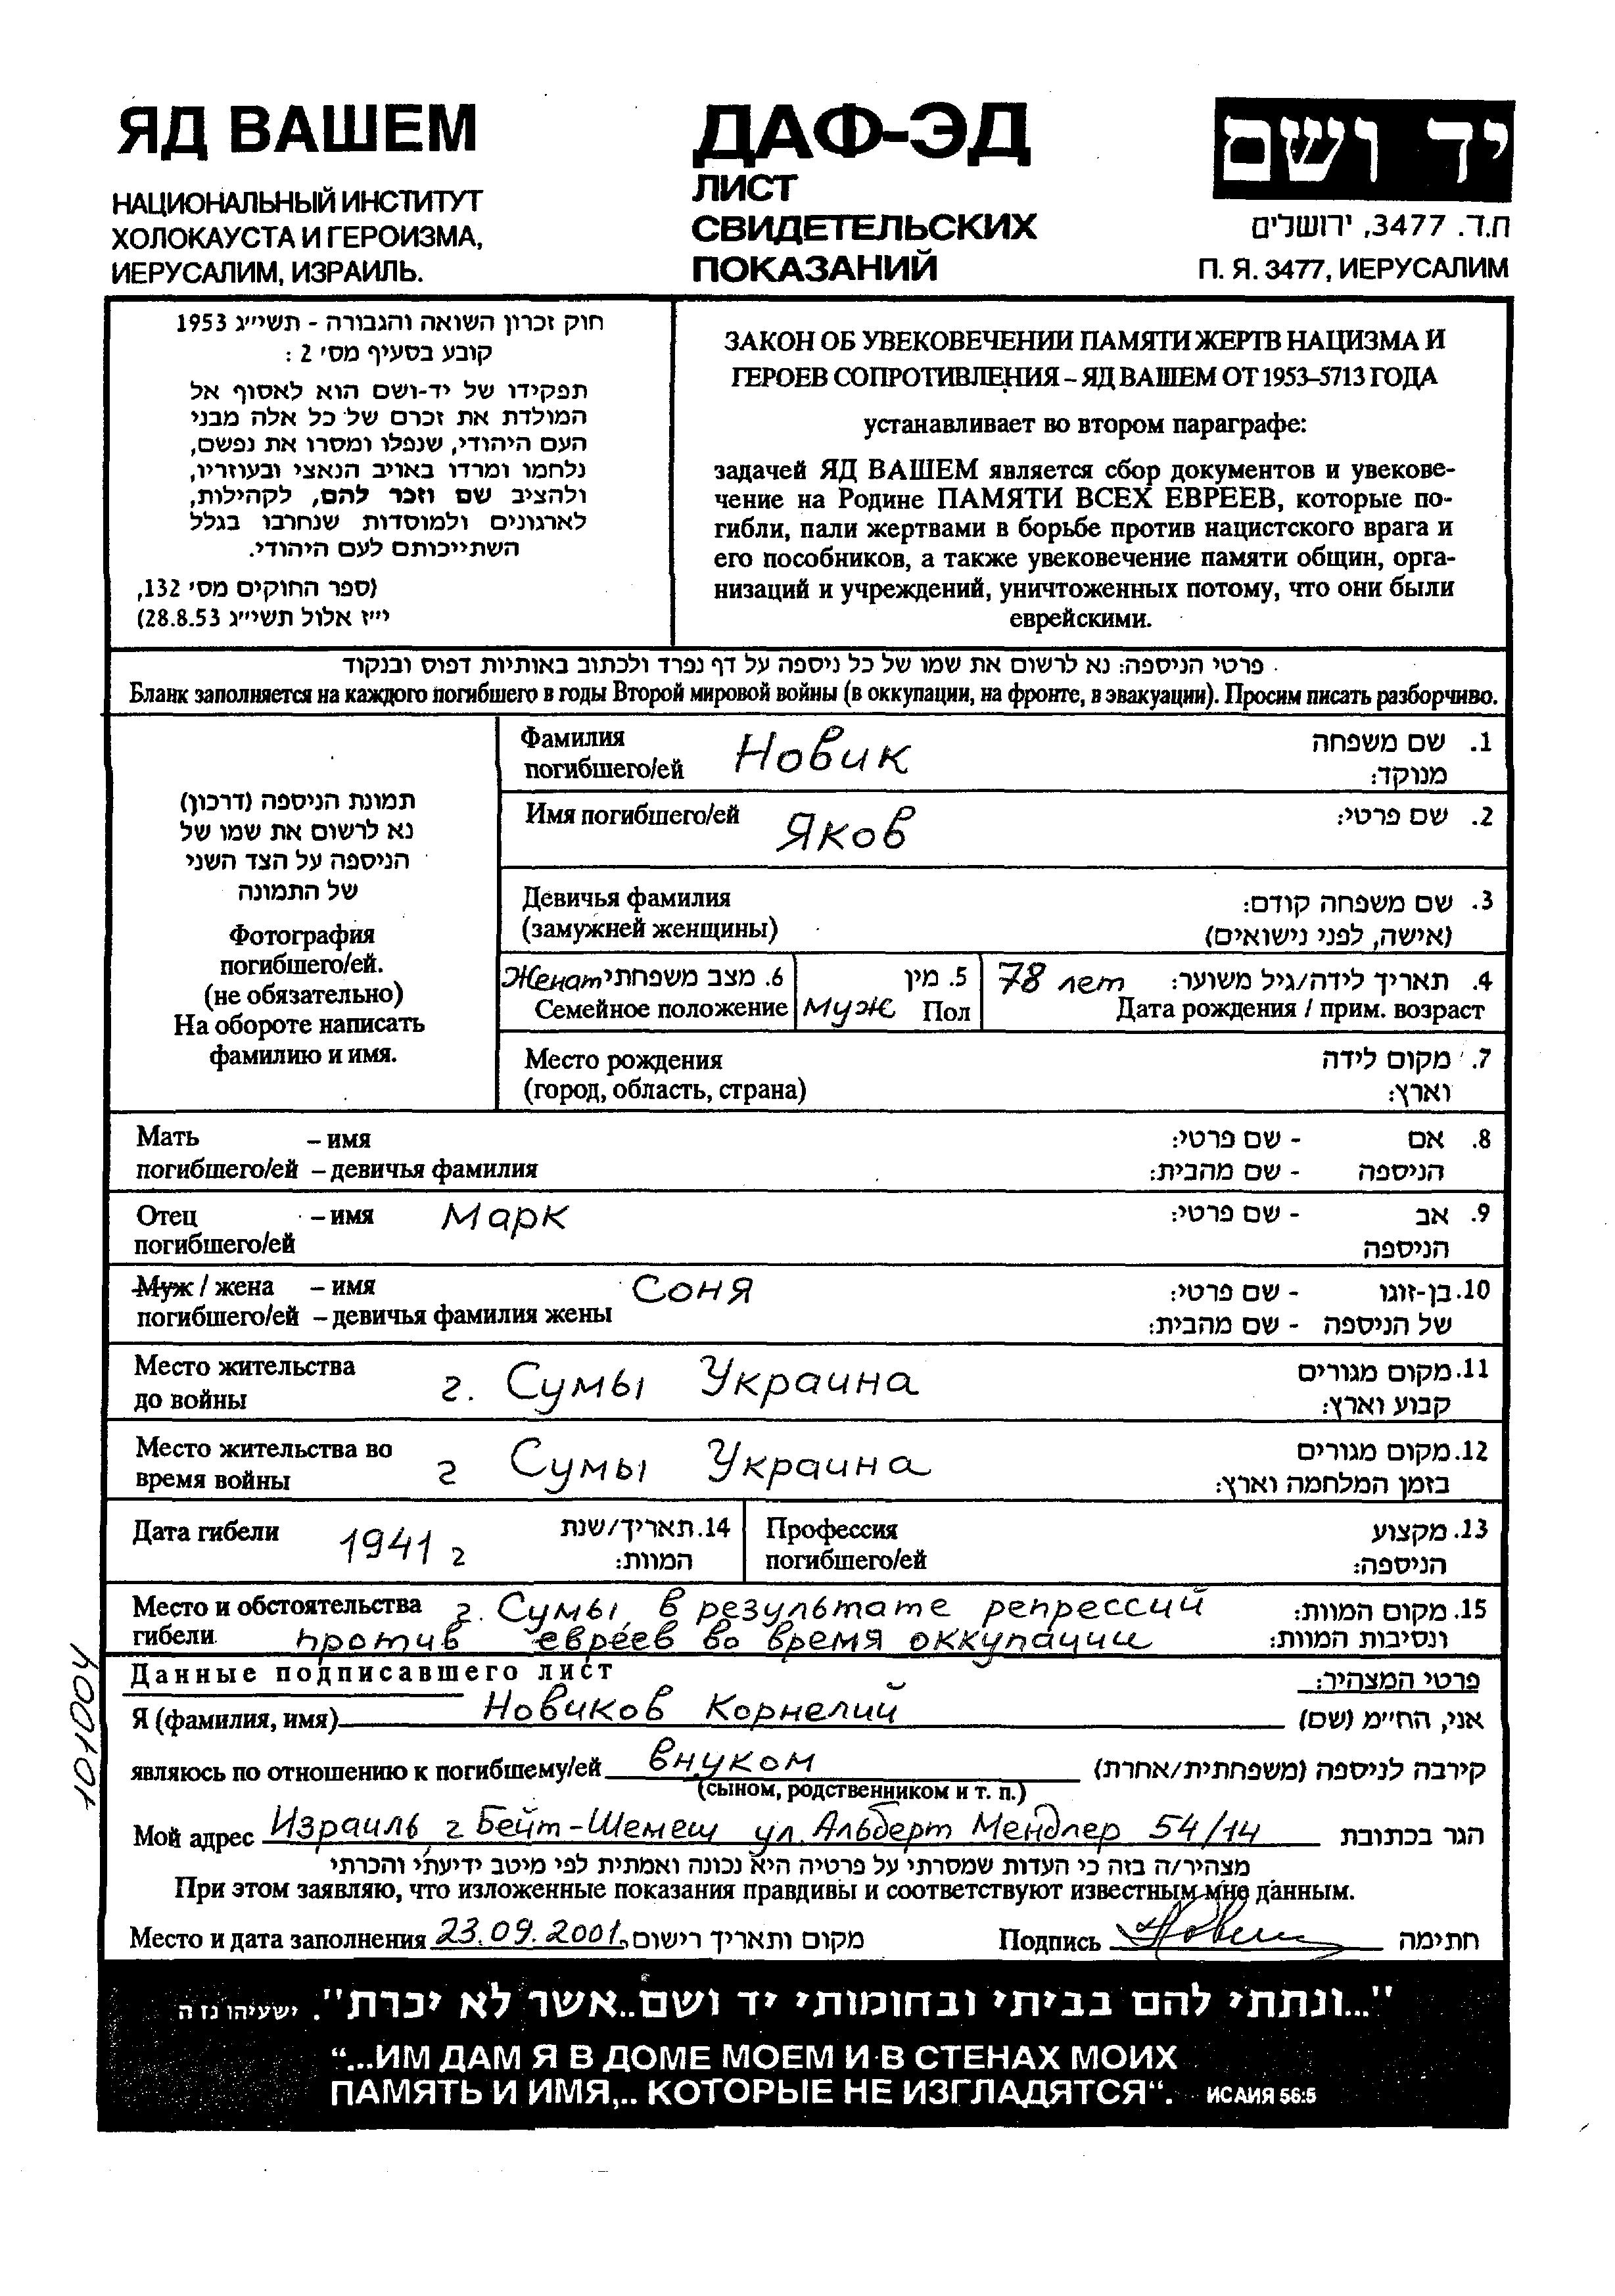 ЯД ВАШЕМ
НАЦИОНАЛЬНЫЙ ИНСТИТУТ
ХОЛОКАУСТА И ГЕРОИЗМА,
ИЕРУСАЛИМ, ИЗРАИЛЬ.
ДАФ-ЭД
ЛИСТ
СВИДЕТЕЛЬСКИХ
ПОКАЗАНИЙ
יד ושם
ת.ד. 3477, ירושלים
П. Я. 3477, ИЕРУСАЛИМ
חוק זכרון השואה והגבורה - תשי״ג 1953
קובע בסעיף מס׳ 2 :
תפקידו של יד-ושם הוא לאסוף אל
המולדת את זכרם של כל אלה מבני
העם היהודי, שנפלו ומסרו את נפשם,
נלחמו ומרדו באויב הנאצי ובעוזריו,
ולהציב שם וזכר להם, לקהילות,
לארגונים ולמוסדות שנחרבו בגלל
השתייכותם לעם היהודי.
(ספר החוקים מס׳ 132,
י״ז אלול תשי״ג 28.8.53)
ЗАКОН ОБ УВЕКОВЕЧЕНИИ ПАМЯТИ ЖЕРТВ НАЦИЗМА И
ГЕРОЕВ СОПРОТИВЛЕНИЯ – ЯД ВАШЕМ ОТ 1953–5713 ГОДА
устанавливает во втором параграфе:
задачей ЯД ВАШЕМ является сбор документов и увекове-
чение на Родине ПАМЯТИ ВСЕХ ЕВРЕЕВ, которые по-
гибли, пали жертвами в борьбе против нацистского врага и
его пособников, а также увековечение памяти общин, орга-
низаций и учреждений, уничтоженных потому, что они были
еврейскими.
פרטי הניספה: נא לרשום את שמו של כל ניספה על דף נפרד ולכתוב באותיות דפוס ובנקוד
Бланк заполняется на каждого погибшего в годы Второй мировой войны (в оккупации, на фронте, в эвакуации). Просим писать разборчиво.
תמונת הניספה (דרכון)
נא לרשום את שמו של
הניספה על הצד השני
של התמונה
Фотография
погибшего/ей.
(не обязательно)
На обороте написать
фамилию и имя.
Фамилия Новик 1. שם משפחה
погибшего/ей מנוקד:
Имя погибшего/ей Яков 2. שם פרטי:
Девичья фамилия 3. שם משפחה קודם:
(замужней женщины) (אישה, לפני נישואים)
Женат 6. מצב משפחתי 5. מין 78 лет 4. תאריך לידה/גיל משוער:
Семейное положение муж Пол Дата рождения / прим. возраст
Место рождения 7. מקום לידה
(город, область, страна) וארץ:
Мать – имя 8. אם - שם פרטי:
погибшего/ей – девичья фамилия הניספה - שם מהבית:
Отец – имя Марк 9. אב - שם פרטי:
погибшего/ей הניספה
Муж / жена – имя Соня 10. בן-זוגו - שם פרטי:
погибшего/ей – девичья фамилия жены של הניספה - שם מהבית:
Место жительства г. Сумы Украина 11. מקום מגורים
до войны קבוע וארץ:
Место жительства во г Сумы Украина 12. מקום מגורים
время войны בזמן המלחמה וארץ:
Дата гибели 1941 г 14. תאריך/שנת Профессия 13. מקצוע
המוות: погибшего/ей הניספה:
Место и обстоятельства г. Сумы, в результате репрессий 15. מקום המוות:
гибели против евреев во время оккупации ונסיבות המוות:
Данные подписавшего лист פרטי המצהיר:
Я (фамилия, имя) Новиков Корнелий אני, הח״מ (שם)
являюсь по отношению к погибшему/ей внуком קירבה לניספה (משפחתית/אחרת)
(сыном, родственником и т. п.)
Мой адрес Израиль, г Бейт-Шемеш ул. Альберт Мендлер 54/14 הגר בכתובת
מצהיר/ה בזה כי העדות שמסרתי על פרטיה היא נכונה ואמתית לפי מיטב ידיעתי והכרתי
При этом заявляю, что изложенные показания правдивы и соответствуют известным мне данным.
Место и дата заполнения 23.09.2001 מקום ותאריך רישום Подпись חתימה
101004
"...ונתתי להם בביתי ובחומותי יד ושם..אשר לא יכרת". ישעיהו נז ה
“...ИМ ДАМ Я В ДОМЕ МОЕМ И В СТЕНАХ МОИХ
ПАМЯТЬ И ИМЯ,.. КОТОРЫЕ НЕ ИЗГЛАДЯТСЯ“. ИСАИЯ 56:5